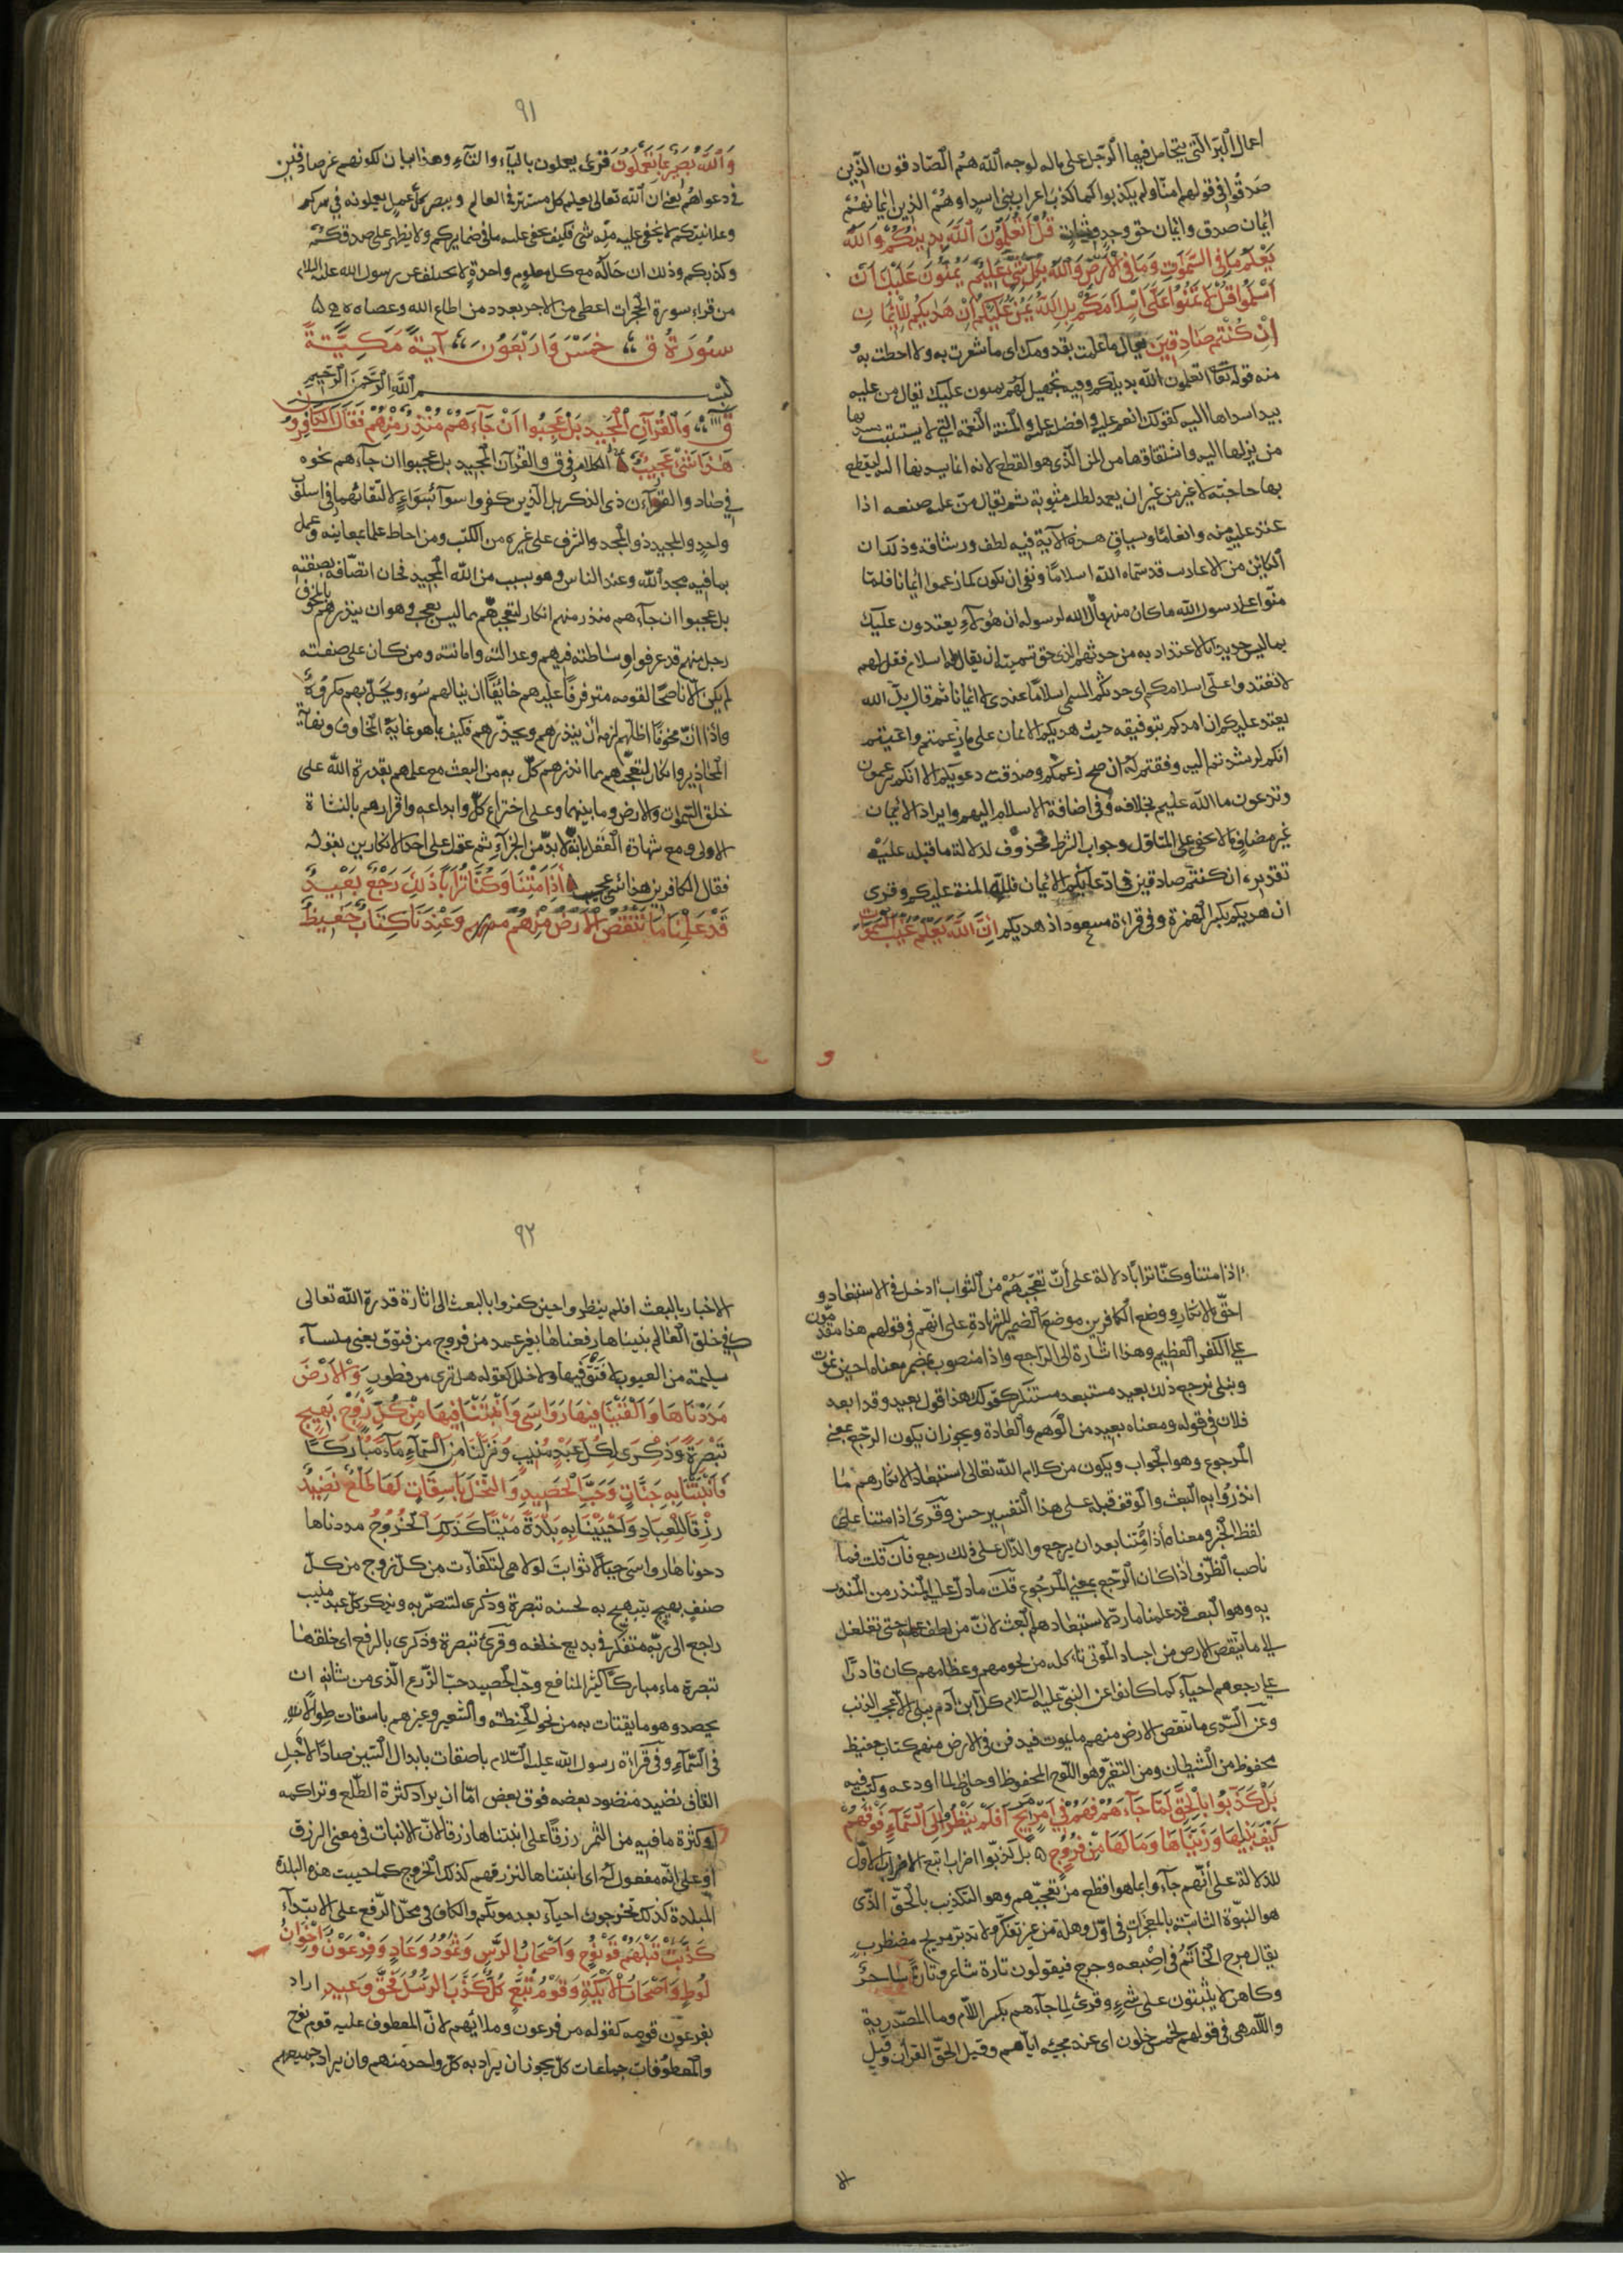 اعمال البر التي يتحامل فيها الرجل على ماله لوجه الله هم الصادقون الذين
صدقوا في قولهم امنا ولم يكذبوا كما كذب اعراب بني اسد او هم الذين ايمانهم
ايمان صدق وايمان حق وجد وثبات قُلْ أَتُعَلِّمُونَ اللَّهَ بِدِينِكُمْ وَاللَّهُ
يَعْلَمُ مَا فِي السَّمَوَاتِ وَمَا فِي الْأَرْضِ وَاللَّهُ بِكُلِّ شَيْءٍ عَلِيمٌ يَمُنُّونَ عَلَيْكَ أَنْ
أَسْلَمُوا قُلْ لَا تَمُنُّوا عَلَيَّ إِسْلَامَكُمْ بَلِ اللَّهُ يَمُنُّ عَلَيْكُمْ أَنْ هَدَيكُمْ لِلْإِيمَانِ
إِنْ كُنْتُمْ صَادِقِينَ يقال ما علمت بقدومك اى ما شعرت به ولا احطت به
منه قوله تعالى اتعلمون الله بدينكم وفيه تجهيل لهم يمنون عليك يقال من عليه
بيد اسداها اليه كقولك انعم عليه وافضل عليه والمنة النعمة التي لا يستثيب بها
من يزلها اليه واشتقاقها من المن الذى هو القطع لانه انما يسديها اليه ليقطع
بها حاجته لا غير من غير ان يعمد لطلب مثوبة ثم يقال من عليه صنعه اذا
عتد عليه منه وانعاما وسياق هذه الآية فيه لطف ورشاقة وذلك ان
الكائن من الاعاريب قد سماه الله اسلاما ونفى ان يكون كما زعموا ايمانا فلما
منوا على رسول الله ما كان منهم قال الله لرسوله ان هؤلاء يعتدون عليك
بما ليس جديرا بالاعتداد به من حدثهم الذى حق تسميته ان يقال له اسلام فقل لهم
لا تعتدوا على اسلامكم اى حدثكم المسمى اسلاما عندى لا ايمانا ثم قال بل الله
يعتد عليكم ان امدكم بتوفيقه حيث هديكم للايمان على ما زعمتم وادعيتم
انكم ارشدتم اليه ووفقتم له ان صح زعمكم وصدقت دعويكم الا انكم تزعمون
وتدعون ما الله عليم بخلافه وفى اضافة الاسلام اليهم وايراد الايمان
غير مضاف ما لا يخفى على المتأول وجواب الشرط محذوف لدلالة ما قبله عليه
تقديره ان كنتم صادقين فى ادعائكم الايمان فلله المنة عليكم وقرى
ان هديكم بكسر الهمزة وفى قراءة مسعود اذ هديكم إِنَّ اللَّهَ يَعْلَمُ غَيْبَ السَّمَوَاتِ
٩١
وَاللَّهُ بَصِيرٌ بِمَا تَعْمَلُونَ قرئ يعملون بالياء والتاء وهذا بيان لكونهم غير صادقين
فى دعواهم يعنى ان الله تعالى يعلم كل مستتر فى العالم ويبصر كل عمل يعملونه فى سركم
وعلانيتكم لا يخفى عليه منه شئ فكيف يخفى عليه ما فى ضمايركم ولا يظهر على صدقكم
وكذبكم وذلك ان حاله مع كل معلوم واحدة لا يختلف عن رسول الله عليه السلام
من قراء سورة الحجرات اعطى من الاجر بعدد من اطاع الله وعصاه
سُورَةُ ق خَمْسٌ وَارْبَعُونَ آيَةً مَكِّيَّةٌ
بسم اللَّهِ الرَّحْمَنِ الرَّحِيمِ
ق وَالْقُرْآنِ الْمَجِيدِ بَلْ عَجِبُوا أَنْ جَاءَهُمْ مُنْذِرٌ مِنْهُمْ فَقَالَ الْكَافِرُونَ
هَذَا شَيْءٌ عَجِيبٌ الكلام فى ق والقرآن المجيد بل عجبوا ان جاءهم نحوه
فى صاد والقرآن ذى الذكر بل الذين كفروا سوآء بسواء لالتقائهما فى اسلوب
واحد والمجيد ذو المجد والشرف على غيره من الكتب ومن احاط علما بمعانيه وعمل
بما فيه مجد عند الله وعند الناس وهو بسبب من الله المجيد فجاز اتصافه بصفته
بل عجبوا ان جاءهم منذر منهم انكار لتعجبهم مما ليس بعجب وهو ان ينذرهم بالمخوف
رجل منهم قد عرفوا وساطته فيهم وعدالته وامانته ومن كان على صفته
لم يكن الا ناصحا لقومه مترفرفا عليهم خائفا ان ينالهم سوء ويحل بهم مكروه
واذا ان مخوفا اظلهم لزمه ان ينذرهم ويحذرهم فكيف بما هو غاية المخاوف ونهاية
المحاذير وانكار لتعجبهم مما انذرهم كل به من البعث مع علمهم بقدرة الله على
خلق السموات والارض وما بينهما وعلى اختراع كل وابداعه واقرارهم بالنشاة
الاولى ومع شهادة العقل بانه لا بد من الجزآء ثم عول على احد الانكارين بقوله
فقال الكافرون هذا شئ عجيب أَإِذَا مِتْنَا وَكُنَّا تُرَابًا ذَلِكَ رَجْعٌ بَعِيدٌ
قَدْ عَلِمْنَا مَا تَنْقُصُ الْأَرْضُ مِنْهُمْ وَعِنْدَنَا كِتَابٌ حَفِيظٌ
ااذا متنا وكنا ترابا دلالة على ان تعجبهم من الثواب ادخل فى الاستبعاد و
احق بالانكار ووضع الكافرين موضع الضمير للشهادة على انهم فى قولهم هذا مقدمون
على الكفر العظيم وهذا اشارة الى الراجع واذا منصوب بمضمر معناه احين نموت
ونبلى نرجع ذلك بعيد مستبعد مستنكر كقولك هذا قول بعيد وقد ابعد
فلان فى قوله ومعناه بعيد من الوهم والعادة ويجوز ان يكون الرجع بمعنى
المرجوع وهو الجواب ويكون من كلام الله تعالى استبعادا لانكارهم ما
انذروا به البعث والوقف قبله على هذا التفسير حسن وقرئ اذا متنا على
لفظ الخبر ومعناه أاذا متنا بعد ان يرجع والدال على ذلك رجع فان قلت فما
ناصب الظرف اذا كان الرجع بمعنى المرجوع قلت ما دل عليه المنذر من المنذر
به وهو البعث قد علمنا ما رد لاستبعادهم البعث لان من لطف علمه حتى تغلغل
الى ما ينقص الارض من اجساد الموتى تاكله من لحومهم وعظامهم كان قادرا
على رجعهم احياء كما كانوا عن النبى عليه السلام كل ابن آدم يبلى الا عجب الذنب
وعن السدى ما تنقص الارض منهم ما يموت فيدفن فى الارض منهم كتاب حفيظ
محفوظ من الشيطان ومن التغير وهو اللوح المحفوظ او حافظ لما اودعه وكتب فيه
بَلْ كَذَّبُوا بِالْحَقِّ لَمَّا جَاءَهُمْ فَهُمْ فِي أَمْرٍ مَرِيجٍ أَفَلَمْ يَنْظُرُوا إِلَى السَّمَاءِ فَوْقَهُمْ
كَيْفَ بَنَيْنَاهَا وَزَيَّنَّاهَا وَمَا لَهَا مِنْ فُرُوجٍ بل كذبوا اضراب اتبع الاضراب الاول
للدلالة على انهم جاءوا بما هو افظع من تعجبهم وهو التكذيب بالحق الذى
هو النبوة الثابتة بالمعجزات فى اول وهلة من غير تفكر ولا تدبر مريج مضطرب
يقال مرج الخاتم فى اصبعه وجرج فيقولون تارة شاعر وتارة ساحر
وكاهن لا يثبتون على شئ وقرئ لما جاءهم بكسر اللام وما المصدرية
واللام هى فى قولهم لخمس خلون اى عند مجيئه اياهم وقيل الحق القرآن وقيل
٩٢
الاخبار بالبعث افلم ينظروا حين كفروا بالبعث الى اثارة قدرة الله تعالى
فى خلق العالم بنيناها رفعناها بغير عمد من فروج من فتوق يعنى ملسآء
سليمة من العيوب لا فتق فيها ولا خلل كقوله هل ترى من فطور وَالْأَرْضَ
مَدَدْنَاهَا وَأَلْقَيْنَا فِيهَا رَوَاسِيَ وَأَنْبَتْنَا فِيهَا مِنْ كُلِّ زَوْجٍ بَهِيجٍ
تَبْصِرَةً وَذِكْرَى لِكُلِّ عَبْدٍ مُنِيبٍ وَنَزَّلْنَا مِنَ السَّمَاءِ مَاءً مُبَارَكًا
فَأَنْبَتْنَا بِهِ جَنَّاتٍ وَحَبَّ الْحَصِيدِ وَالنَّخْلَ بَاسِقَاتٍ لَهَا طَلْعٌ نَضِيدٌ
رِزْقًا لِلْعِبَادِ وَأَحْيَيْنَا بِهِ بَلْدَةً مَيْتًا كَذَلِكَ الْخُرُوجُ مددناها
دحوناها رواسى جبالا ثوابت لولا هى لتكفأت من كل زوج من كل
صنف بهيج يبتهج به لحسنه تبصرة وذكرى لتتبصر به ويذكر كل عبد منيب
راجع الى ربه متفكر فى بديع خلقه وقرئ تبصرة وذكرى بالرفع اى خلقها
تبصرة ماء مباركا كثير المنافع وحب الحصيد حب الزرع الذى من شانه ان
يحصد وهو ما يقتات به من نحو الحنطة والشعير وغيرهم باسقات طوالا
فى السماء وفى قراءة رسول الله عليه السلام باصقات بابدال السين صادا لاجل
القاف نضيد منضود بعضه فوق بعض اما ان يراد كثرة الطلع وتراكمه
او كثرة ما فيه من الثمر رزقا على انبتناها رزقا لان الانبات فى معنى الرزق
او على انه مفعول له اى انبتناها لنرزقهم كذلك الخروج كما حييت هذه البلدة
الميتة كذلك تخرجون احياء بعد موتكم والكاف فى محل الرفع على الابتدآء
كَذَّبَتْ قَبْلَهُمْ قَوْمُ نُوحٍ وَأَصْحَابُ الرَّسِّ وَثَمُودُ وَعَادٌ وَفِرْعَوْنُ وَإِخْوَانُ
لُوطٍ وَأَصْحَابُ الْأَيْكَةِ وَقَوْمُ تُبَّعٍ كُلٌّ كَذَّبَ الرُّسُلَ فَحَقَّ وَعِيدِ اراد
بفرعون قومه كقوله من فرعون وملائهم لان المعطوف عليه قوم نوح
والمعطوفات جماعات كل يجوز ان يراد به كل واحد منهم وان يراد جميعهم